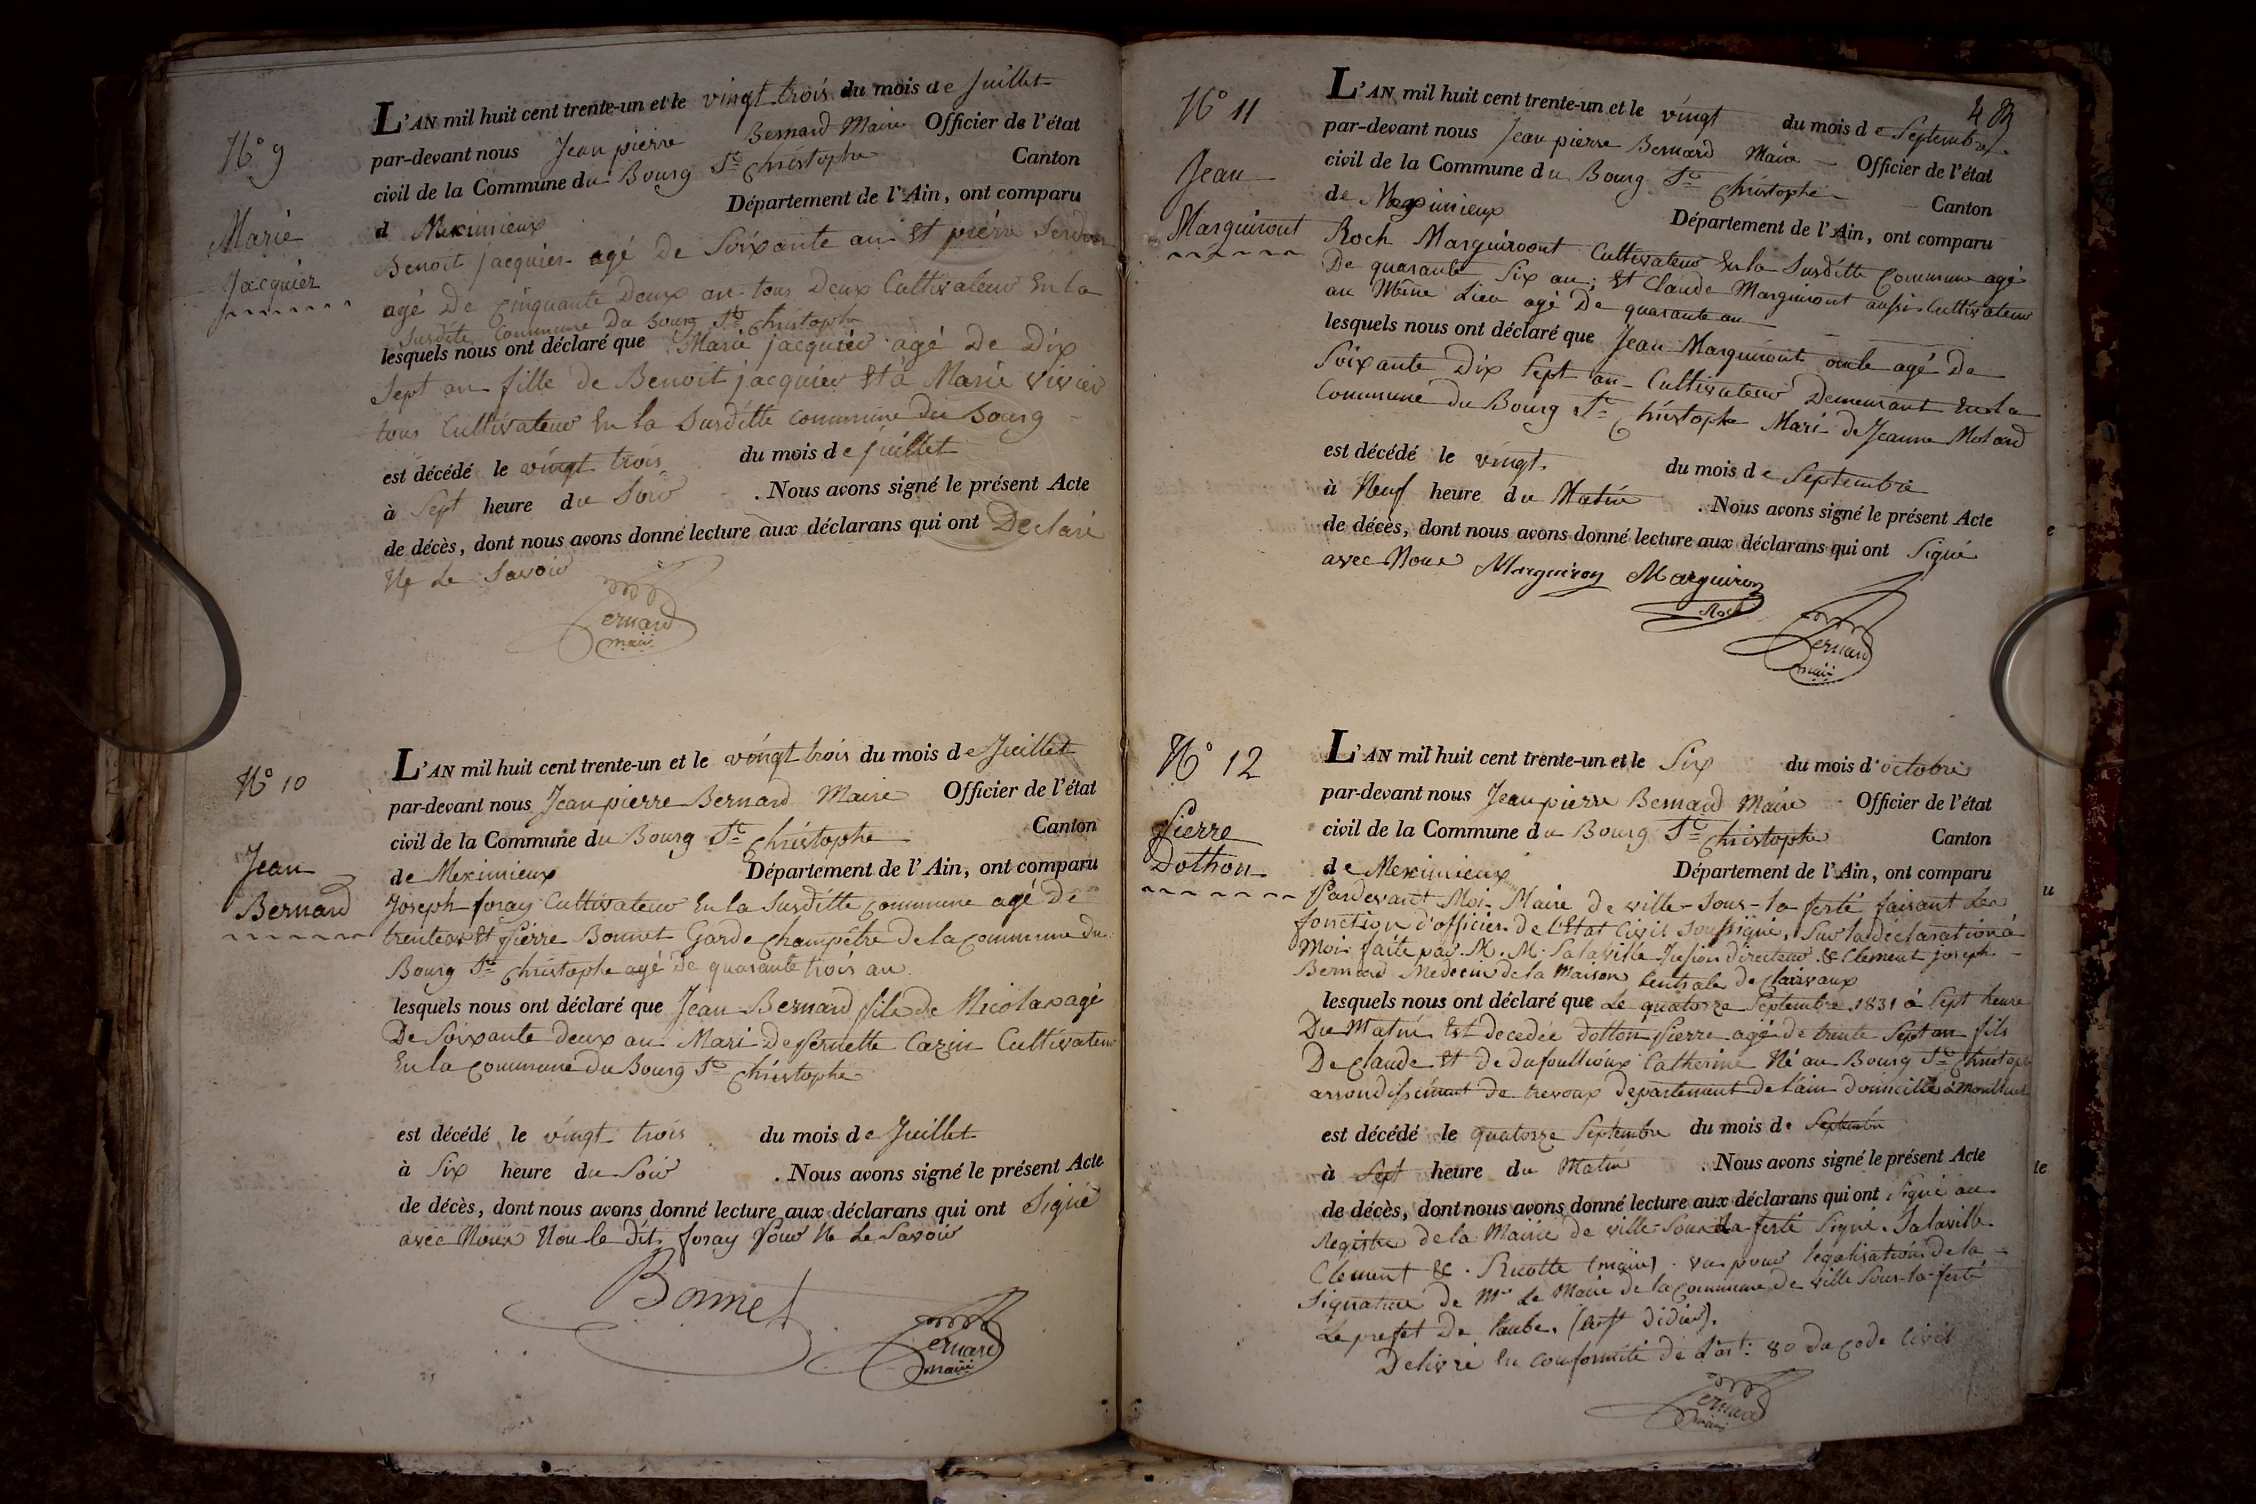 N° 9
Marie
Jacquier
L'AN mil huit cent trente-un et le vingt trois du mois de Juillet
par-devant nous Jean pierre Bernard Maire Officier de l'état
civil de la Commune du Bourg St Christophe Canton
d Meximieux Département de l'Ain, ont comparu
Benoit jacquier agé De Soixante an Et pierre
agé De Cinquante Deux an tous Deux Cultivateur En la
Susdite Commune Du Bourg St Christophe
lesquels nous ont déclaré que Marie jacquier agé De Dix
Sept an fille de Benoit jacquier Et à Marie Vivier
tous Cultivateur En la Susditte commune du Bourg
est décédé le vingt trois du mois de juillet
à Sept heure du Soir . Nous avons signé le présent Acte
de décès, dont nous avons donné lecture aux déclarans qui ont Declaré
Ne Le Savoir
Bernard
maire
N° 10
Jean
Bernard
L'AN mil huit cent trente-un et le vingt trois du mois de Juillet
par-devant nous Jean pierre Bernard Maire Officier de l'état
civil de la Commune du Bourg St Christophe Canton
de Meximieux Département de l'Ain, ont comparu
Joseph foray Cultivateur En la Susditte commune agé De
trente an Et Pierre Bonnet Garde Champêtre De la Commune du
Bourg St Christophe agé de quarante trois an
lesquels nous ont déclaré que Jean Bernard fils de Nicolas agé
De Soixante deux an Mari De pernette Cazin Cultivateur
En la Commune Du Bourg St Christophe
est décédé le vingt trois du mois de Juillet
à Six heure du Soir . Nous avons signé le présent Acte
de décès, dont nous avons donné lecture aux déclarans qui ont Signé
avec Nous Non le dit foray Pour Ne Le Savoir
Bonnet
Bernard
maire
N° 11
Jean
Marguiront
L'AN mil huit cent trente-un et le vingt du mois de Septembre
par-devant nous Jean pierre Bernard Maire Officier de l'état
civil de la Commune du Bourg St Christophe Canton
de Meximieux Département de l'Ain, ont comparu
Roch Marguiront Cultivateur En la Susditte Commune agé
De quarante Six an; Et Claude Marguiront aussi Cultivateur
au Même Lieu agé De quarante an
lesquels nous ont déclaré que Jean Marguiront oncle agé De
Soixante Dix Sept an Cultivateur Demeurant En la
Commune du Bourg St Christophe Mari de Jeanne Molard
est décédé le vingt du mois de Septembre
à Neuf heure du Matin . Nous avons signé le présent Acte
de décès, dont nous avons donné lecture aux déclarans qui ont Signé
avec Nous Marguiron Marguiron
Roch
Bernard
maire
N° 12
Pierre
Dothon
L'AN mil huit cent trente-un et le Six du mois d'octobre
par-devant nous Jean pierre Bernard Maire Officier de l'état
civil de la Commune du Bourg St Christophe Canton
de Meximieux Département de l'Ain, ont comparu
Pardevant Moi Maire De ville-sous-la ferté faisant Les
fonction d'officier De l'Etat Civil Soussigné, Sur la déclaration à
Moi faite par M. M. Salaville directeur & Clement joseph
Bernard Medecin de la Maison Centrale De Clairvaux
lesquels nous ont déclaré que Le quatorze Septembre 1831 à Sept heure
Du Matin Est decedée dotton Pierre agé de trente Sept an fils
De Claude Et De Catherine Né au Bourg St Christophe
arrondissement De trevoux Departement De l'ain domicilié à Montluel
est décédé le quatorze Septembre du mois de Septembre
à Sept heure du Matin . Nous avons signé le présent Acte
de décès, dont nous avons donné lecture aux déclarans qui ont Signé au
Registre de la Mairie de ville-Sous-la-ferté Signé. Salaville
Clement & (maire) . vu pour legalisation De la
Signature De Mr Le Maire de la Commune de ville Sous-la-ferté
Le prefet De l'aube. didier).
Delivré En Conformité De l'art: 80 du Code Civil
Bernard
maire